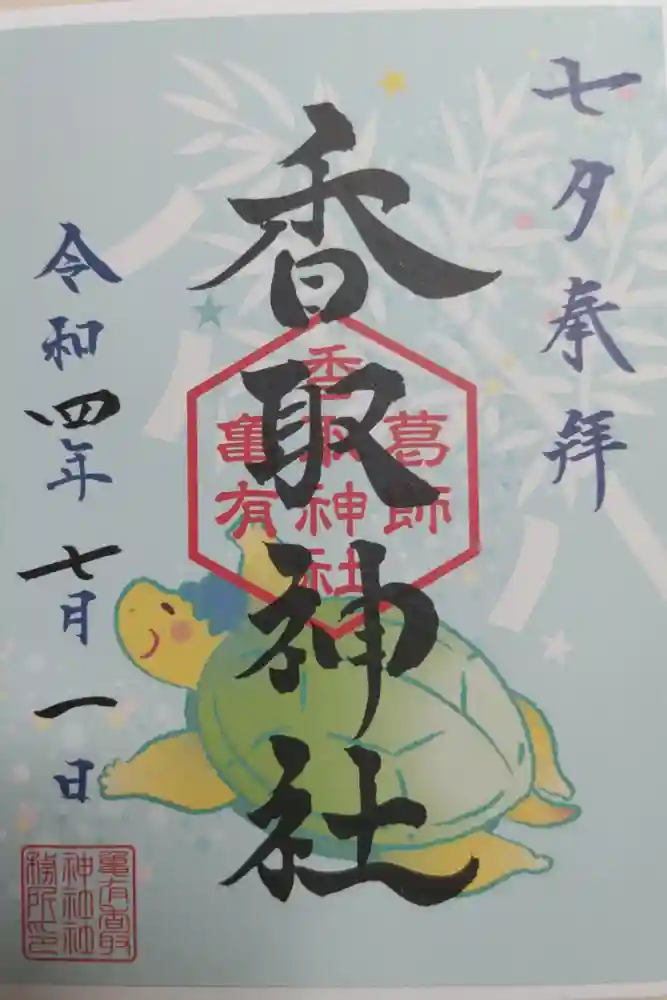 七夕奉拝
香取神社
葛飾
香取神社
亀有
令和四年七月一日
亀有香取
神社社
務所印